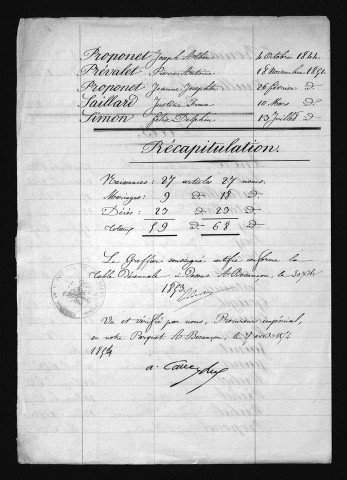 Proponet Joseph Arthur 4 Octobre 1844.
Prévalet Pierre Antoine 18 Novembre 1851.
Proponet Jeanne Josephte 26 février d°.
Saillard Justine Irma 10 Mars d°
Simon Félix Delphin 13 Juillet d°
Récapitulation.
Naissances: 27 articles 27 noms.
Mariages: 9 d° 18 d°
Décès: 23 d° 23 d°
Totaux 59 68 d°
Le Greffier soussigné certifie conforme la
table Décennale à Besançon, le 30 Xbre
1853
Vu et vérifié par nous, Procureur impérial,
en notre Parquet à Besançon, le
1854